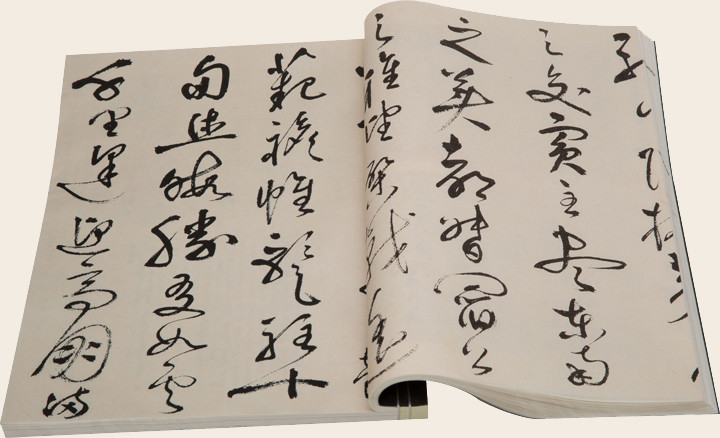 之交賓主盡東南
之美都督閻公
之雅望棨戟遙
範襜帷暫駐十
旬休暇勝友如雲
千里逢迎高朋滿